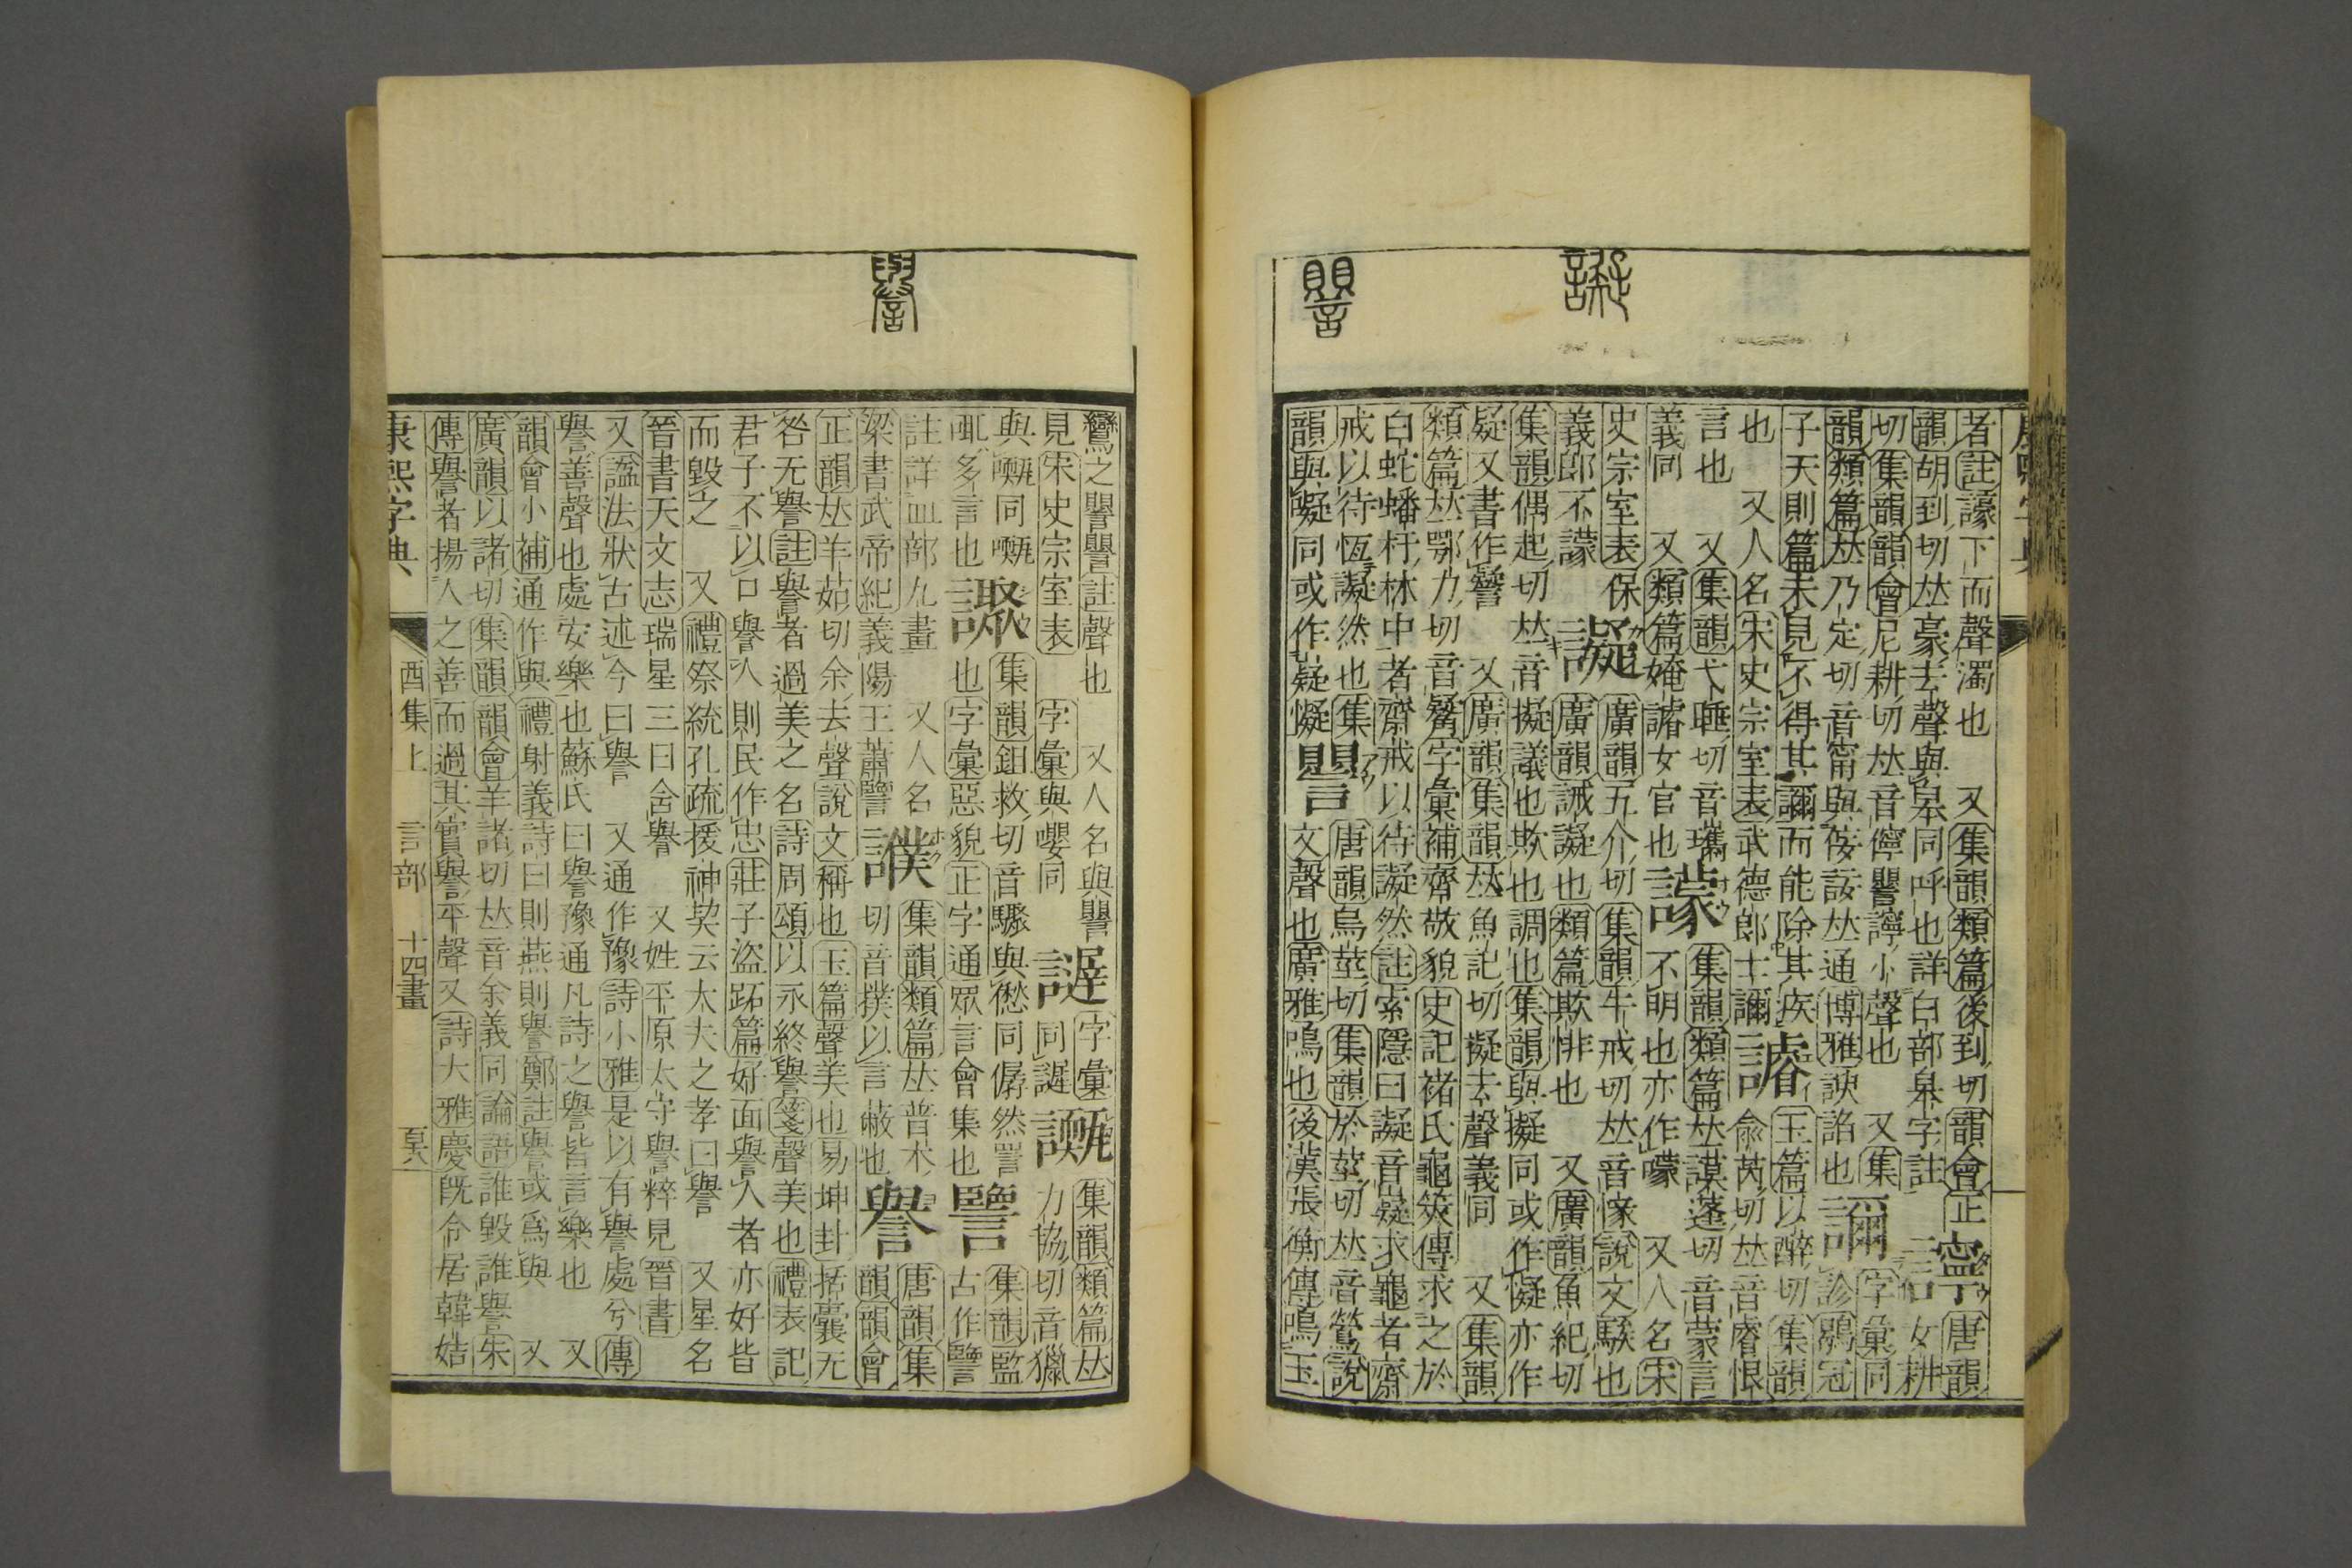 者註諑下而聲濁也 又集韻類篇後到切韻會正
韻胡到切𠀤豪去聲與㬥同呼也詳白部皋字註
唐韻
女耕
切集韻韻會尼耕切𠀤音儜譻小聲也 又集
韻類篇𠀤乃定切音甯與佞𠀤通博雅諛諂也
字彙同
診鶡冠
子天則篇未見不得其而能除其疾
也 又人名宋史宗室表武德郎士
玉篇以醉切集韻
兪芮切𠀤音睿恨
言也 又集韻弋睡切音
義同 又類篇女官也
集韻類篇𠀤謨蓬切音蒙言
不明也亦作 又人名宋
史宗室表保
義郎不
譺
廣韻五介切集韻牛戒切𠀤音說文騃也
廣韻誡譺也類篇欺悱也 又廣韻魚紀切
集韻偶起切𠀤音擬議也欺也調也集韻與擬同或作儗亦作
疑又書作 又廣韻集韻𠀤魚記切擬去聲義同 又集韻
類篇𠀤鄂力切音嶷字彙補齊敬貌史記褚氏龜筴傳求之於
白蛇蟠杅林中者齋戒以待譺然註索隱曰譺音嶷求龜者齋
戒以待恆譺然也集
韻與礙同或作懝
譻
唐韻烏莖切集韻於莖切𠀤音鶯說
文聲也廣雅鳴也後漢張衡傳鳴玉
鸞之譻譻註聲也 又人名與譻
見宋史宗室表 字彙與嚶同
字彙
同謘
集韻類篇𠀤
力協切音獵
多言也
集韻鉏救切音驟與同僝然詈
也字彙惡貌正字通眾言會集也
譼
集韻監
古作譼
註詳皿部九畫 又人名
梁書武帝紀義陽王蕭譼
集韻類篇𠀤普木
切音撲以言蔽也
譽
唐韻集
韻韻會
正韻𠀤羊茹切余去聲說文稱也玉篇聲美也易坤卦括囊无
咎无譽註譽者過美之名詩周頌以永終譽箋聲美也禮表記
君子不以口譽人則民作忠莊子盜跖篇好面譽人者亦好背
而毀之 又禮祭統孔疏援神契云大夫之孝曰譽 又星名
晉書天文志瑞星三曰含譽 又姓平原太守譽粹見晉書
又諡法狀古述今曰譽 又通作豫詩小雅是以有譽處兮傳
譽善聲也處安樂也蘇氏曰譽豫通凡詩之譽皆言樂也 又
韻會小補通作與禮射義詩曰則燕則譽鄭註譽或爲與 又
廣韻以諸切集韻韻會羊諸切𠀤音余義同論語誰毀誰譽朱
傳譽者揚人之善而過其實譽平聲又詩大雅慶旣令居韓姞
康熙字典 酉集上 言部 十四畫